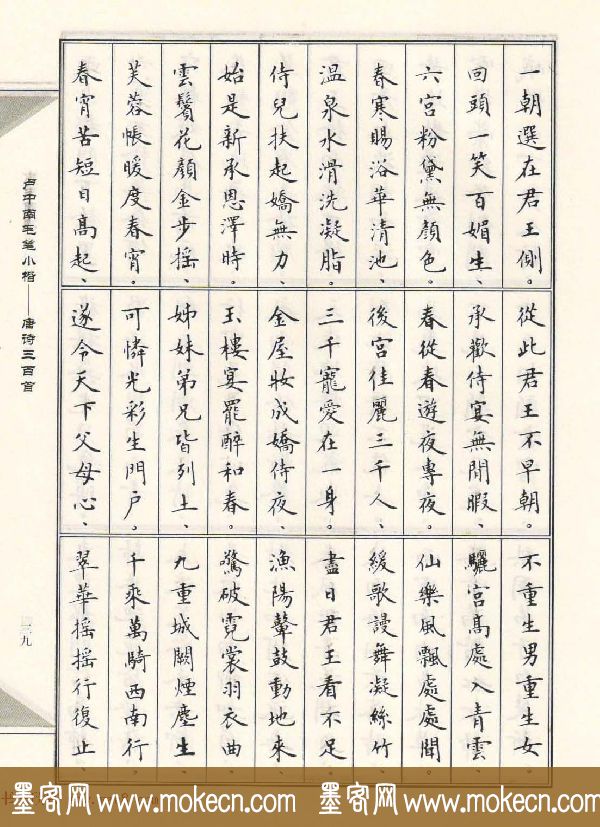 一朝選在君王側。
回頭一笑百媚生、
六宮粉黛無顏色。
春寒賜浴華清池、
温泉水滑洗凝脂。
侍兒扶起嬌無力、
始是新承恩澤時。
雲鬢花顏金步摇、
芙蓉帳暖度春宵。
春宵苦短日髙起、
從此君王不早朝。
承歡侍宴無閒暇、
春從春遊夜專夜。
後宮佳麗三千人、
三千寵愛在一身。
金屋妝成嬌侍夜、
玉樓宴罷醉和春。
姊妹弟兄皆列土、
可憐光彩生門戶。
遂令天下父母心、
不重生男重生女。
驪宮髙處入青雲、
仙樂風飄處處聞。
緩歌謾舞凝絲竹、
盡日君王看不足。
漁陽鼙鼓動地來、
驚破霓裳羽衣曲。
九重城闕煙塵生、
千乘萬騎西南行。
翠華摇摇行復止、
卢中南毛笔小楷——唐诗三百首
三九
墨客网 www.mokecn.com 墨客网 www.mokecn.com